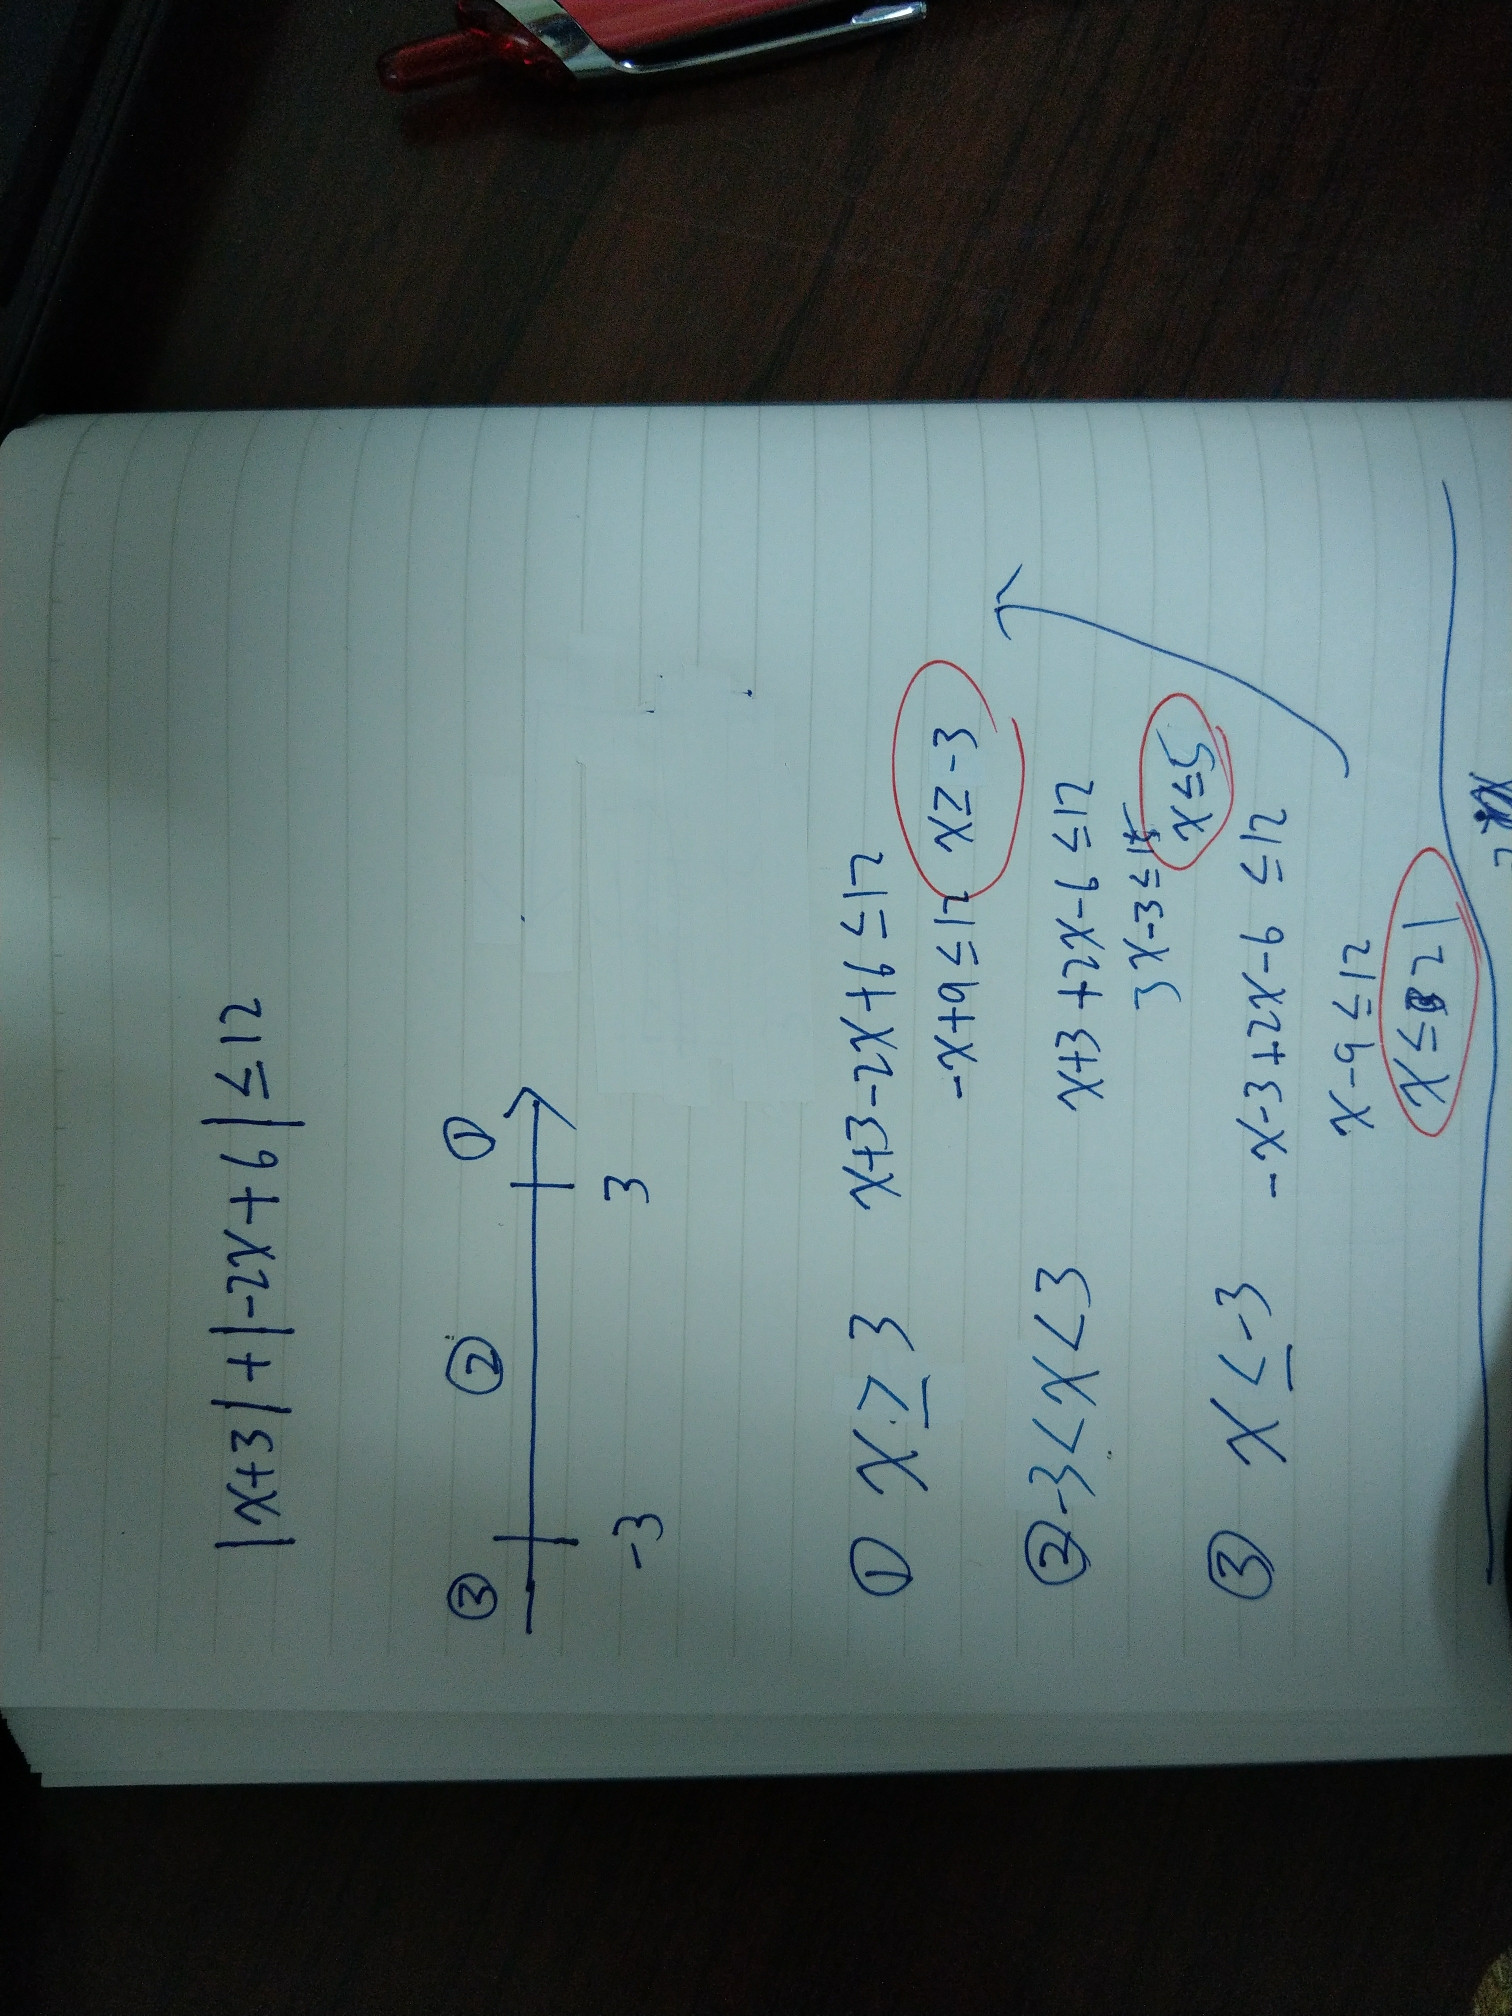 |x+3|+|-2x+6|≤12
③ ② ①
-3 3
① x≥3 x+3-2x+6≤12
-x+9≤12 x≥-3
② -3<x<3 x+3+2x-6≤12
3x-3≤15
x≤5
③ x≤-3 -x-3+2x-6≤12
x-9≤12
x≤21